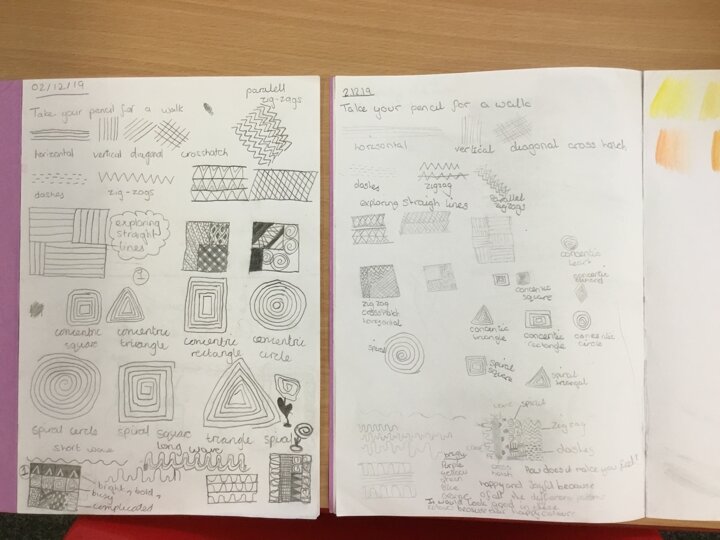 02/12/19
Take your pencil for a walk
paralell
zig-zags
horizontal
vertical diagonal
crosshatch
dashes
zig-zags
exploring
straight
lines
1
concentric
square
concentric
triangle
concentric
rectangle
concentric
circle
spiral circls
spiral square
triangle spiral
short wave
long wave
1
bright, bold,
busy
complicated
2.12.19
Take your pencil for a walk
horizontal
vertical
diagonal cross hatch
dashes
zigzag
Parallel
zigzags
exploring straigh lines
concentric
concentric
square
concentric
diamond
zig zag
crosshatch
horizontal
concentric
triangle
concentric
rectangle
concentric
circle
spiral
spiral
square
spiral
triangal
wave
spiral
zig zag
dashes
cross
hatch
busy
Purple
yellow
green
blue
orange
How does it make you feel?
happy and Joyful because
of all the different patterns
It would look good in these
colour because
happy colours